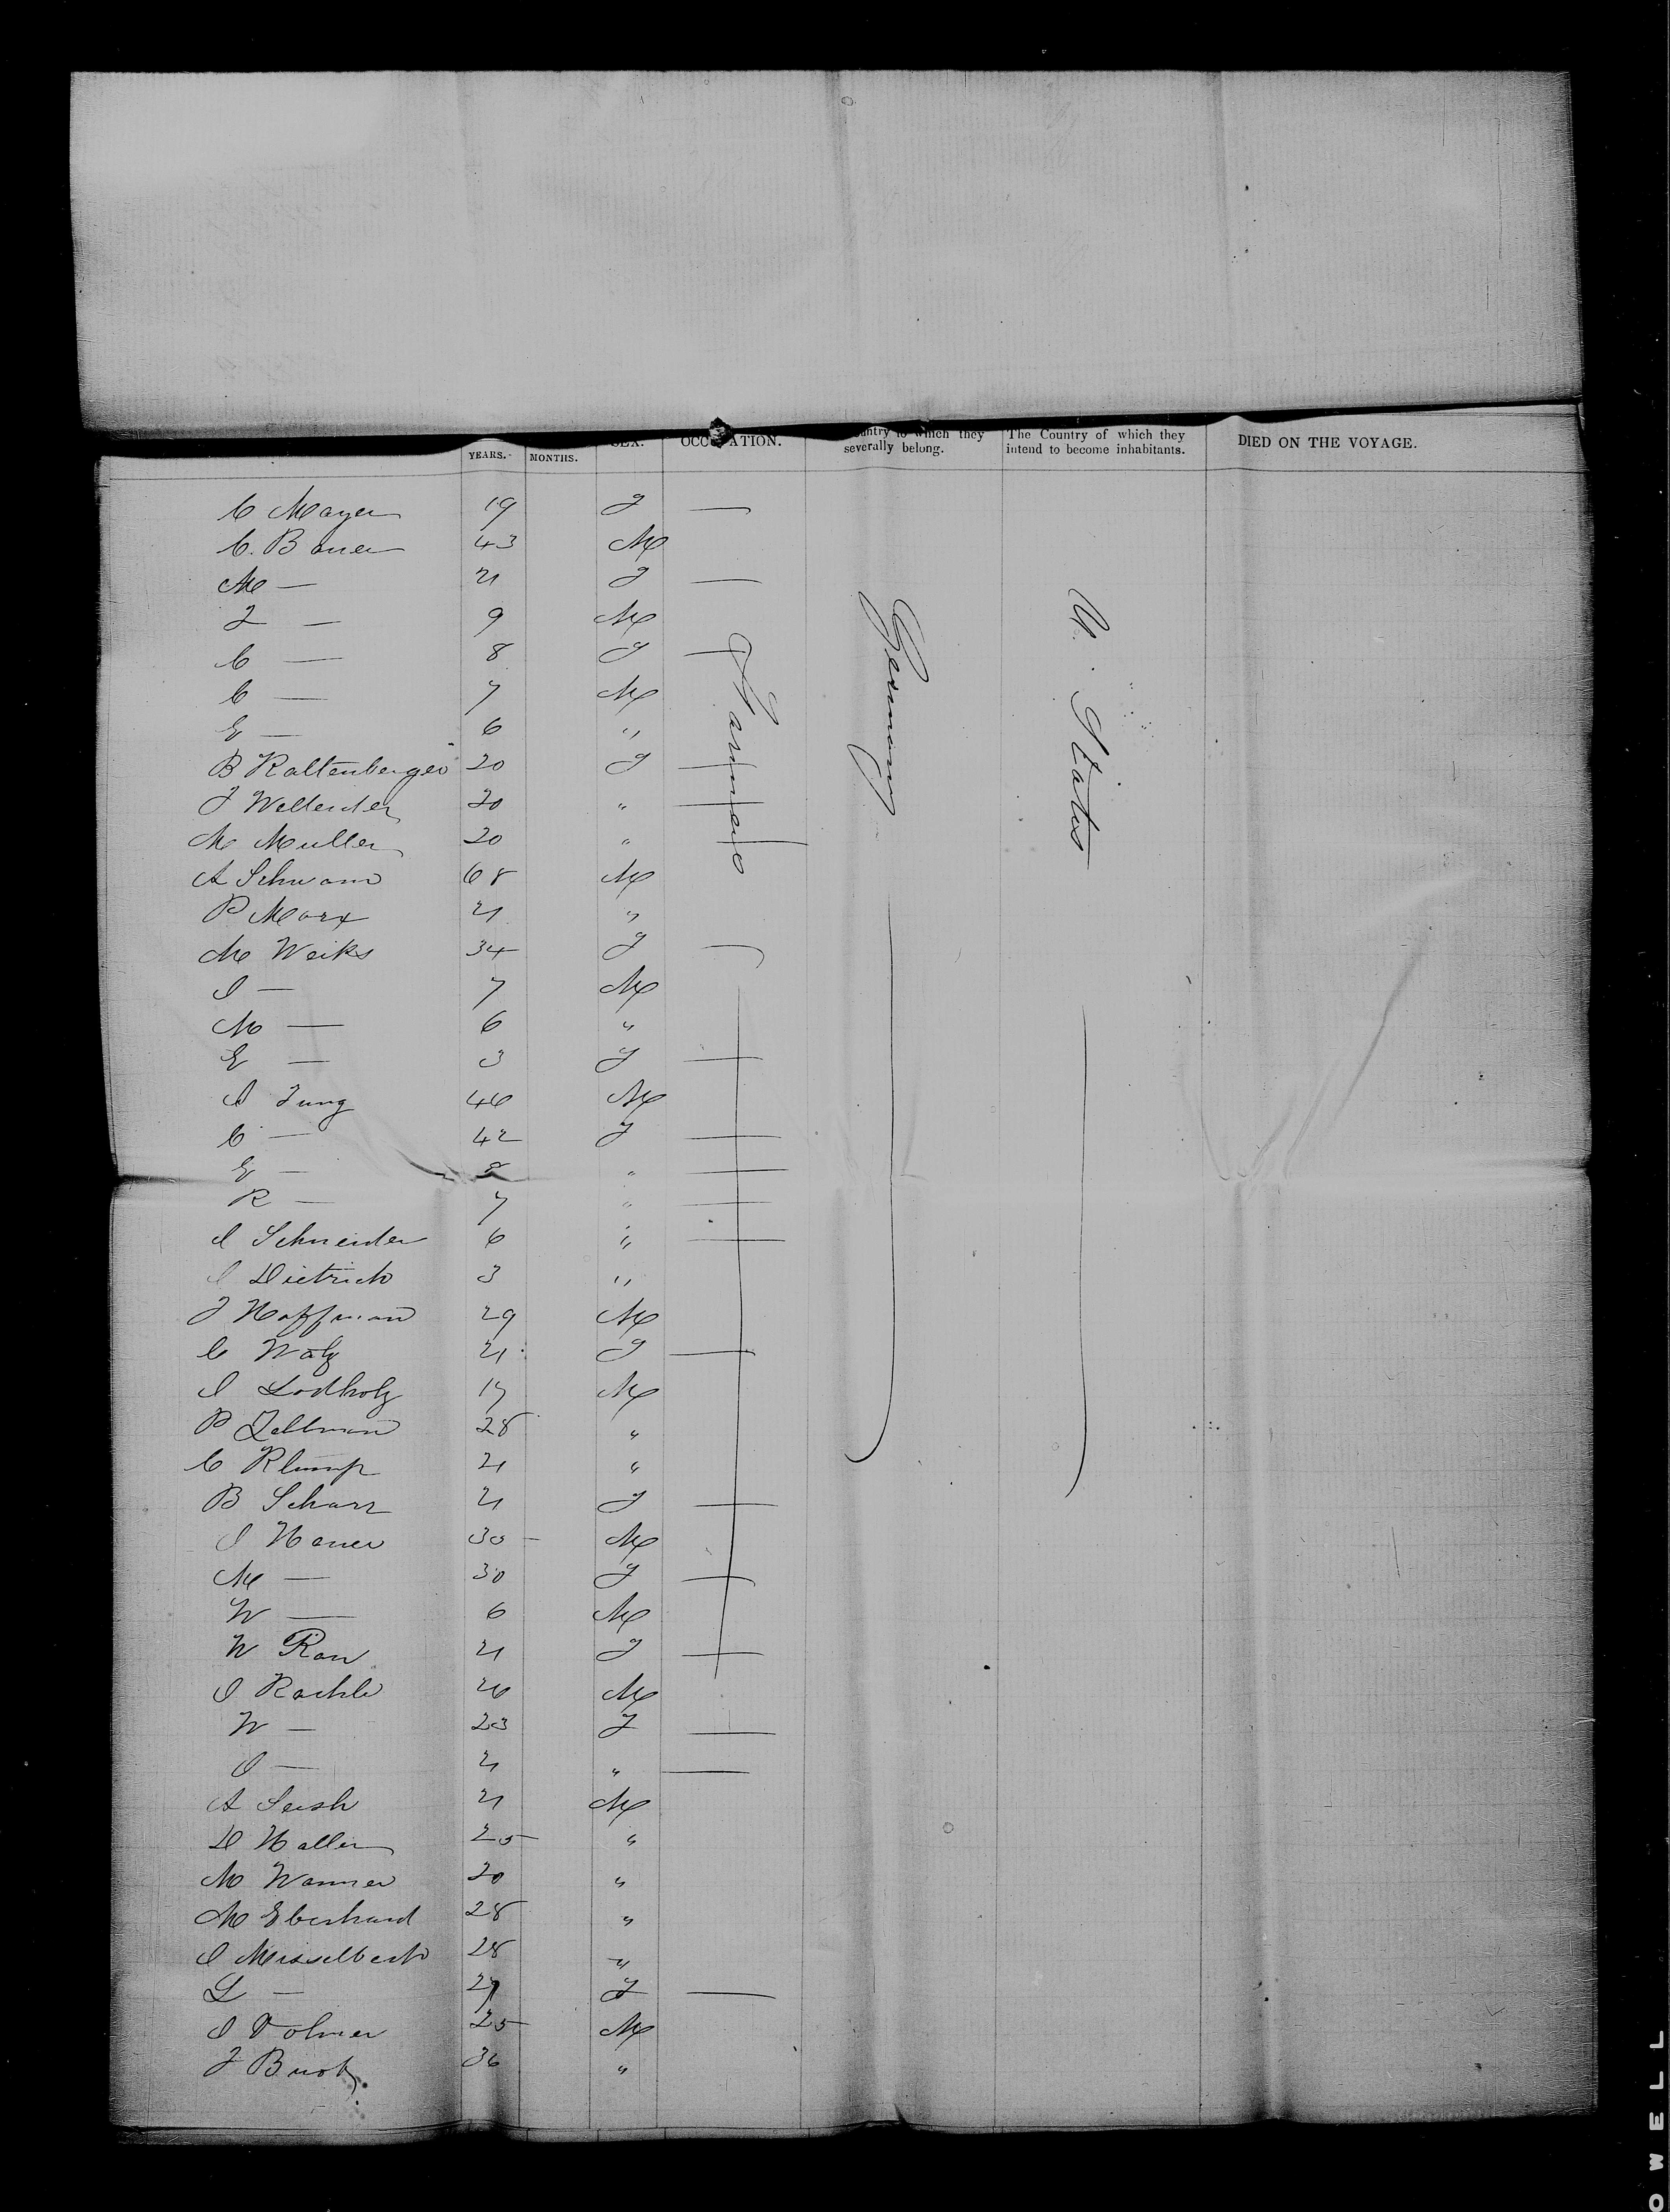 YEARS. MONTHS. SEX. OCCUPATION. Country to which they severally belong. The Country of which they intend to become inhabitants. DIED ON THE VOYAGE.
C Mayer 19 F —
C. Bauer 43 M
M — 21 F —
J — 9 M
C — 8 F —
C — 7 M
E — 6 "
B Kaltenberger 20 F —
J 20 " —
M Muller 20 " —
A Schwam 68 M
P Marx 21 "
M Weiks 34 F —
I — 7 M
M — 6 "
E — 3 F —
I Jung 46 M
C — 42 F —
E — 8 " —
R — 7 " —
I Schneider 6 " —
I Dietrich 3 "
J Hoffman 29 M
C Walz 21 F —
I Lodholz 17 M
P Zellman 28 "
C Klump 21 "
B Scharr 21 F —
I Hauer 30 — M
M — 30 F —
W — 6 M
W Rau 21 F —
I Rachle 26 M
W — 23 F —
O — 21 " —
A 21 M
D Haller 25 "
M Wanner 20 "
M Eberhard 28 "
I Misselbeck 28 "
L — 27 F —
I Volmer 25 M
J 36 "
Farmers
Germany
U. States
OWELL